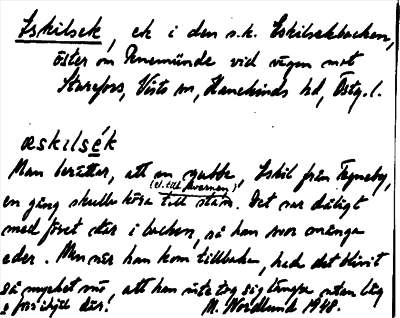 Eskilsek, ek i den s.k. Eskilsekbacken,
öster om Penemünde vid vägen mot
Starefors, Vists sn, Hanekinds hd, Östg.l.
æskɩlsék
Man berättar, att en gubbe, Eskil från Tegneby,
(el. till kvarnen)
en gång skulle köra till stan. Det var dåligt
med föret där i backen, så han svor många
eder. Men när han kom tillbaka, hade det blivit
så mycket snö, att han inte tog sig längre utan låg
o frös ihjäl där! M. Nordlund 1948.